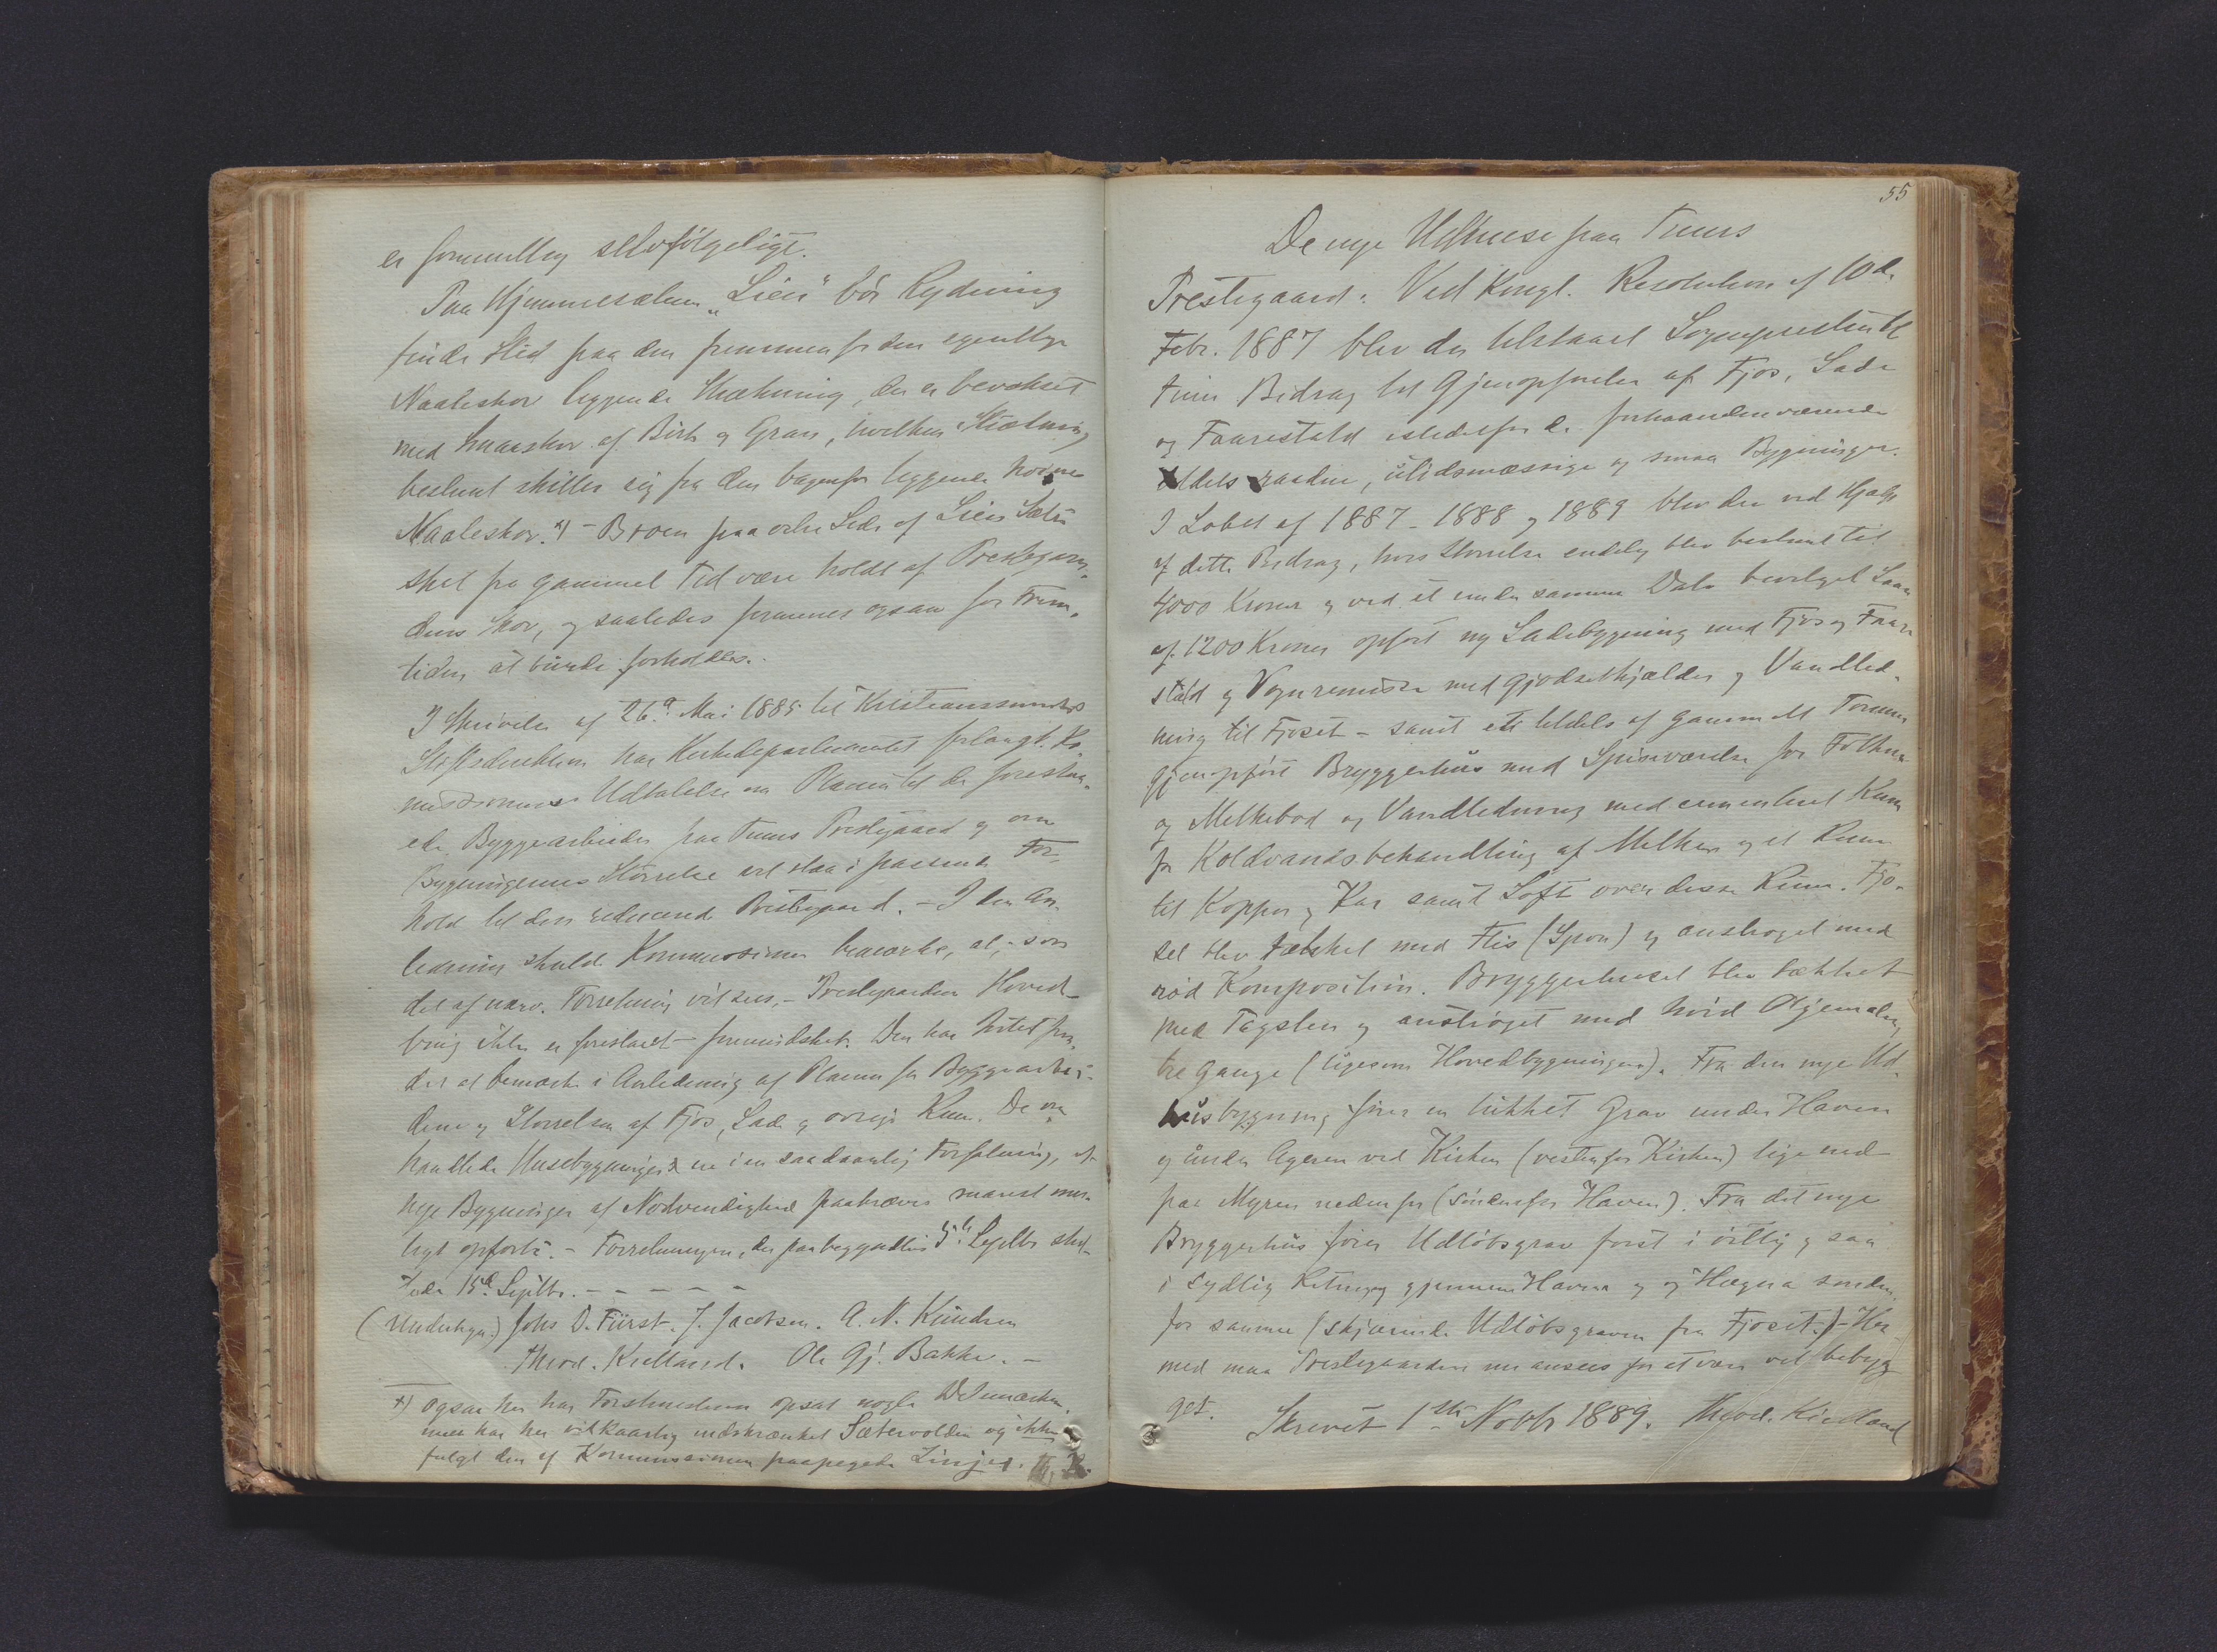 er formentlig selvfølgeligt.
Paa Hjemmesæteren "Lien" bør Rydning
finde Sted paa den fremmenfor den egentlige
Naaleskov liggende Strækning, der er bevokset
med Smaaskov af Birk og Gran, hvilken Strækning
bestemt skiller sig fra den bagenfor liggende
Naaleskov. x) - Broen paa østre Side af Liens Sæter
skal fra gammel Tid være holdt af Prestegaar-
dens Skov, og saaledes formenes ogsaa for Frem-
tiden at burde forholdes.
I Skrivelse af 26de Mai 1885 til Kristianssunds
Stiftsdirektion har Kirkedepartementet forlangt Ko-
missionens Udtalelse om Planen til de forestaa-
ende Byggearbeider paa Tinns Prestegaard og om
Bygningernes Størrelse vil staa i passende For-
hold til den reducerede Prestegaard. - I den An-
ledning skulde Kommissionen bemærke, at, som
det af nærv. Forretning vil sees, - Prestegaardens Hoved-
brug ikke er foreslaaet formindsket. Den har Intet fun-
det at bemærke i Anledning af Planen for Byggearbei-
dene og Størrelsen af Fjøs, Lade og øvrige Rum. De om-
handlede Husebygninger ere i en saa daarlig Forfatning, at
nye Bygninger af Nødvendighed paakræves snarest mu-
ligt opført. - Forretningen, der paabegyndtes 5te Septbr slut-
tede 15de Septbr. - - - - -
(Underskr.) Johs D. Fürst. J. Jacobsen. A. N. Knudsen
Theod. Kielland. Ole Gj. Bakke. -
x) Ogsaa her har Forstmesteren opsat nogle Delemærker,
men har her vilkaarlig indskrænket Sætervolden og ikke
fulgt den af Kommissionen paapegede Linjer. Th. K.
55
De nye Udhuse paa Tinns
Prestegaard. Ved Kongl. Resolution af 10de
Febr. 1887 blev der tilstaaet Sognepresten til
Tinn Bidrag til Gjenopførelse af Fjøs, Lade
og Faarestald istedetfor de forhaandenværende
ældels raadne, utidsmæssige og smaa Bygninger.
I Løbet af 1887 - 1888 og 1889 blev der ved Hjælp
af dette Bidrag, hvis Størrelse endelig blev bestemt til
4000 Kroner og ved et under samme Dato bevilget Laan
af 1200 Kroner opført ny Ladebygning med Fjøs og Faare-
stald og Vognremisse med Gjødselkjælder og Vandled-
ning til Fjøset - samt et tildels af gammelt Tømmer
gjenopført Bryggerhus med Spiseværelse for Folkene
og Melkebod og Vandledning med cementeret Kum
for Koldvandsbehandling af Melken og et Rum
til Kopper og Kar samt Loft over disse Rum. Fjø-
set blev tækket med Flis (Spon) og anstrøget med
rød Komposition. Bryggerhuset blev tækket
med Tagsten og anstrøget med hvid Oljemaling
tre Gange (ligesom Hovedbygningen). Fra den nye Ud-
husbygning fører en lukket Grav under Haven
og under Ageren ved Kirken (vestenfor Kirken) lige ned
paa Myren nedenfor (søndenfor Haven). Fra det nye
Bryggerhus fører Udløbsgrav først i østlig og saa
i sydlig Retning gjennem Haven og Hægna sønden-
for samme (skjærende Udløbsgraven fra Fjøset.) - Her-
med maa Prestegaarden nu ansees for at være vel bebyg-
get.
Skrevet 1ste Novbr 1889. Theod. Kielland